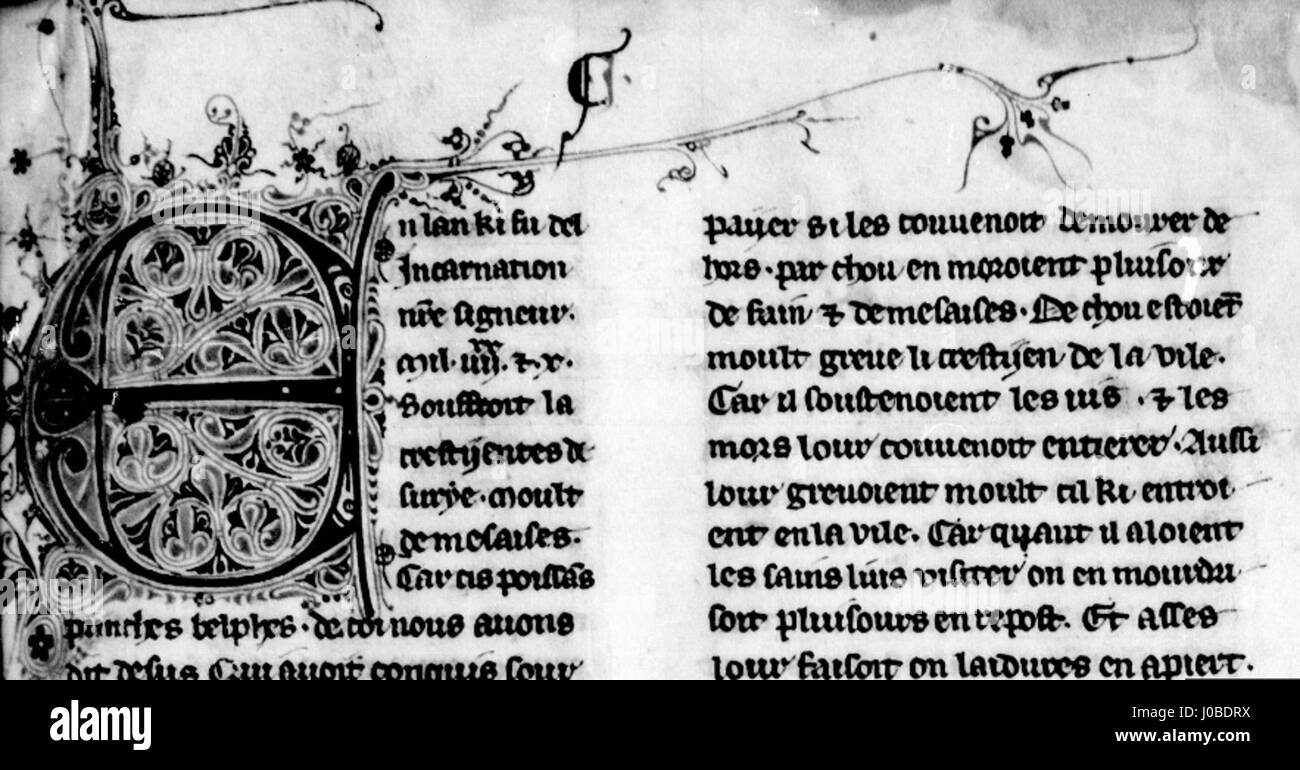 C.
En lan ki fu del
Incarnation
nr̄e signeur.
mil. iiii.xx & x.
Souffroit la
crestyentes de
surye. moult
de mesaises.
Car cis poissās
prinches belphes. de coi nous auons
dit desus Qui auoit conquis sour
payer si les couuenoit demourer de
hors. par chou en moroient pluisour
de fain & de mesaises. De chou estoiēt
moult greue li crestyen de la vile.
Car il soustenoient les uis. & les
mors lour couuenoit entierer. Aussi
lour greuoient moult cil ki entroi
ent en la vile. Car quant il aloient
les sains luis visiter on en mourdri
soit pluisours en repost. Et asses
lour faisoit on laidures en apiert.
alamy
Image ID: J0BDRX
www.alamy.com